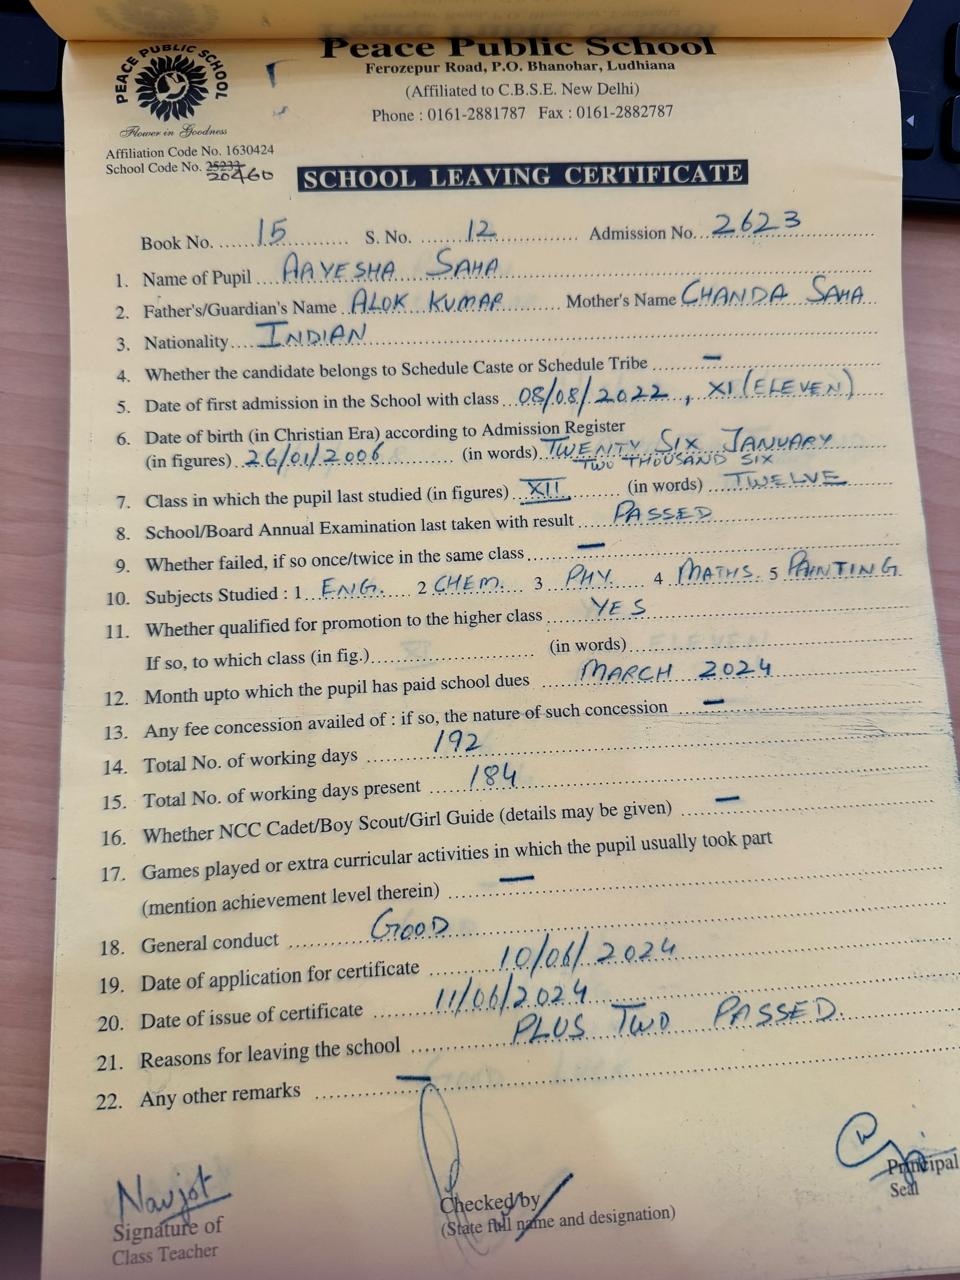 PEACE PUBLIC SCHOOL
Flower in Goodness
Peace Public School
Ferozepur Road, P.O. Bhanohar, Ludhiana
(Affiliated to C.B.S.E. New Delhi)
Phone : 0161-2881787 Fax : 0161-2882787
Affiliation Code No. 1630424
School Code No. 25233 20460
SCHOOL LEAVING CERTIFICATE
Book No. 15 S. No. 12 Admission No. 2623
1. Name of Pupil AAYESHA SAHA
2. Father's/Guardian's Name ALOK KUMAR Mother's Name CHANDA SAHA
3. Nationality INDIAN
4. Whether the candidate belongs to Schedule Caste or Schedule Tribe –
5. Date of first admission in the School with class 08/08/2022, XI (ELEVEN)
6. Date of birth (in Christian Era) according to Admission Register
(in figures) 26/01/2006 (in words) TWENTY SIX JANUARY
TWO THOUSAND SIX
7. Class in which the pupil last studied (in figures) XII (in words) TWELVE
8. School/Board Annual Examination last taken with result PASSED
9. Whether failed, if so once/twice in the same class –
10. Subjects Studied : 1 ENG. 2 CHEM. 3 PHY. 4 MATHS. 5 PAINTING
11. Whether qualified for promotion to the higher class YES
If so, to which class (in fig.) (in words)
12. Month upto which the pupil has paid school dues MARCH 2024
13. Any fee concession availed of : if so, the nature of such concession –
14. Total No. of working days 192
15. Total No. of working days present 184
16. Whether NCC Cadet/Boy Scout/Girl Guide (details may be given) –
17. Games played or extra curricular activities in which the pupil usually took part
(mention achievement level therein) –
18. General conduct GOOD
19. Date of application for certificate 10/06/2024
20. Date of issue of certificate 11/06/2024
21. Reasons for leaving the school PLUS TWO PASSED.
22. Any other remarks –
Navjot
Signature of
Class Teacher
Checked by
(State full name and designation)
Principal
Seal